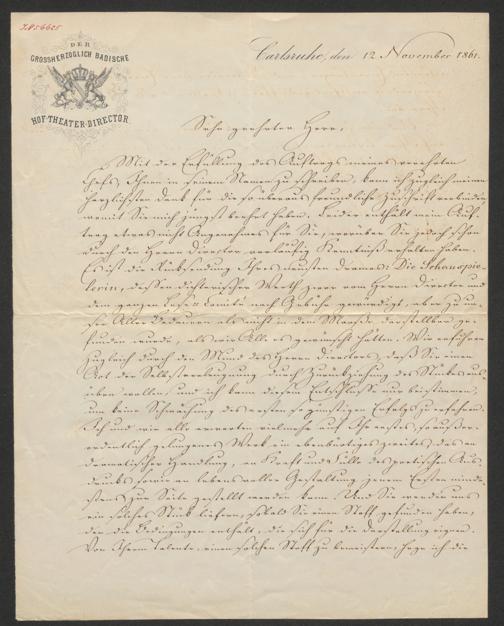 DER
GROSSHERZOGLICH BADISCHE
HOF-THEATER-DIRECTOR
Carlsruhe, den 12 November 1861.
Sehr geehrter Herr,
Mit der Erfüllung des Auftrags meines verehrten
Chefs, Ihnen in seinem Namen zu schreiben, kann ich zugleich meinen
herzlichsten Dank für die so überaus freundliche Zuschrift verbinden
womit Sie mich jüngst beehrt haben. Leider enthält mein Auf-
trag etwas nicht Angenehmes für Sie, worüber Sie jedoch schon
durch den Herrn Director vorläufig Kenntniß erhalten haben.
Es ist die Rücksendung Ihres neusten Dramas: Die Schauspie-
lerin, dessen dichterischer Werth zwar vom Herrn Director und
dem ganzen Lese-Comité nach Gebühr gewürdigt, aber zu un-
ser Aller Bedauern als nicht in dem Maaße darstellbar ge-
funden wurde, als wir Alle es gewünscht hätten. Wir erfuhren
zugleich durch den Mund des Herrn Directors, daß Sie einen
Act der Selbstverleugnung durch Zurückziehung des Stückes aus-
üben wollen und ich kann diesem Entschlusse nur beistimmen,
um keine Schwächung des ersten so günstigen Erfolgs zu erfahren.
Ich und wir alle erwarten vielmehr auf Ihr erstes, so außer-
ordentlich gelungenes Werk ein ebenbürtiges zweites, das an
dramatischer Handlung, an Kraft und Fülle des poetischen Aus-
drucks sowie an lebensvoller Gestaltung jenem Ersten minde-
stens zur Seite gestellt werden kann. Und Sie werden uns
ein solches Stück liefern, sobald Sie einen Stoff gefunden haben,
der die Bedingungen enthält, die sich für die Darstellung eignen.
Von Ihrem Talente, einen solchen Stoff zu bemeistern, hege ich die